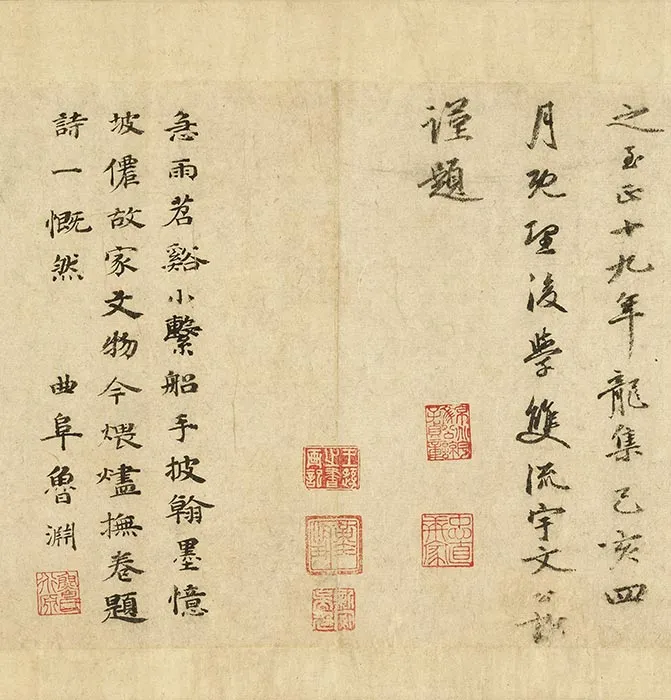 之至正十九年龍集己亥四
月既望後學雙流宇文公諒
謹題
急雨苕谿小繫船手披翰墨憶
坡僊故家文物今煨燼撫卷題
詩一慨然 曲阜魯淵